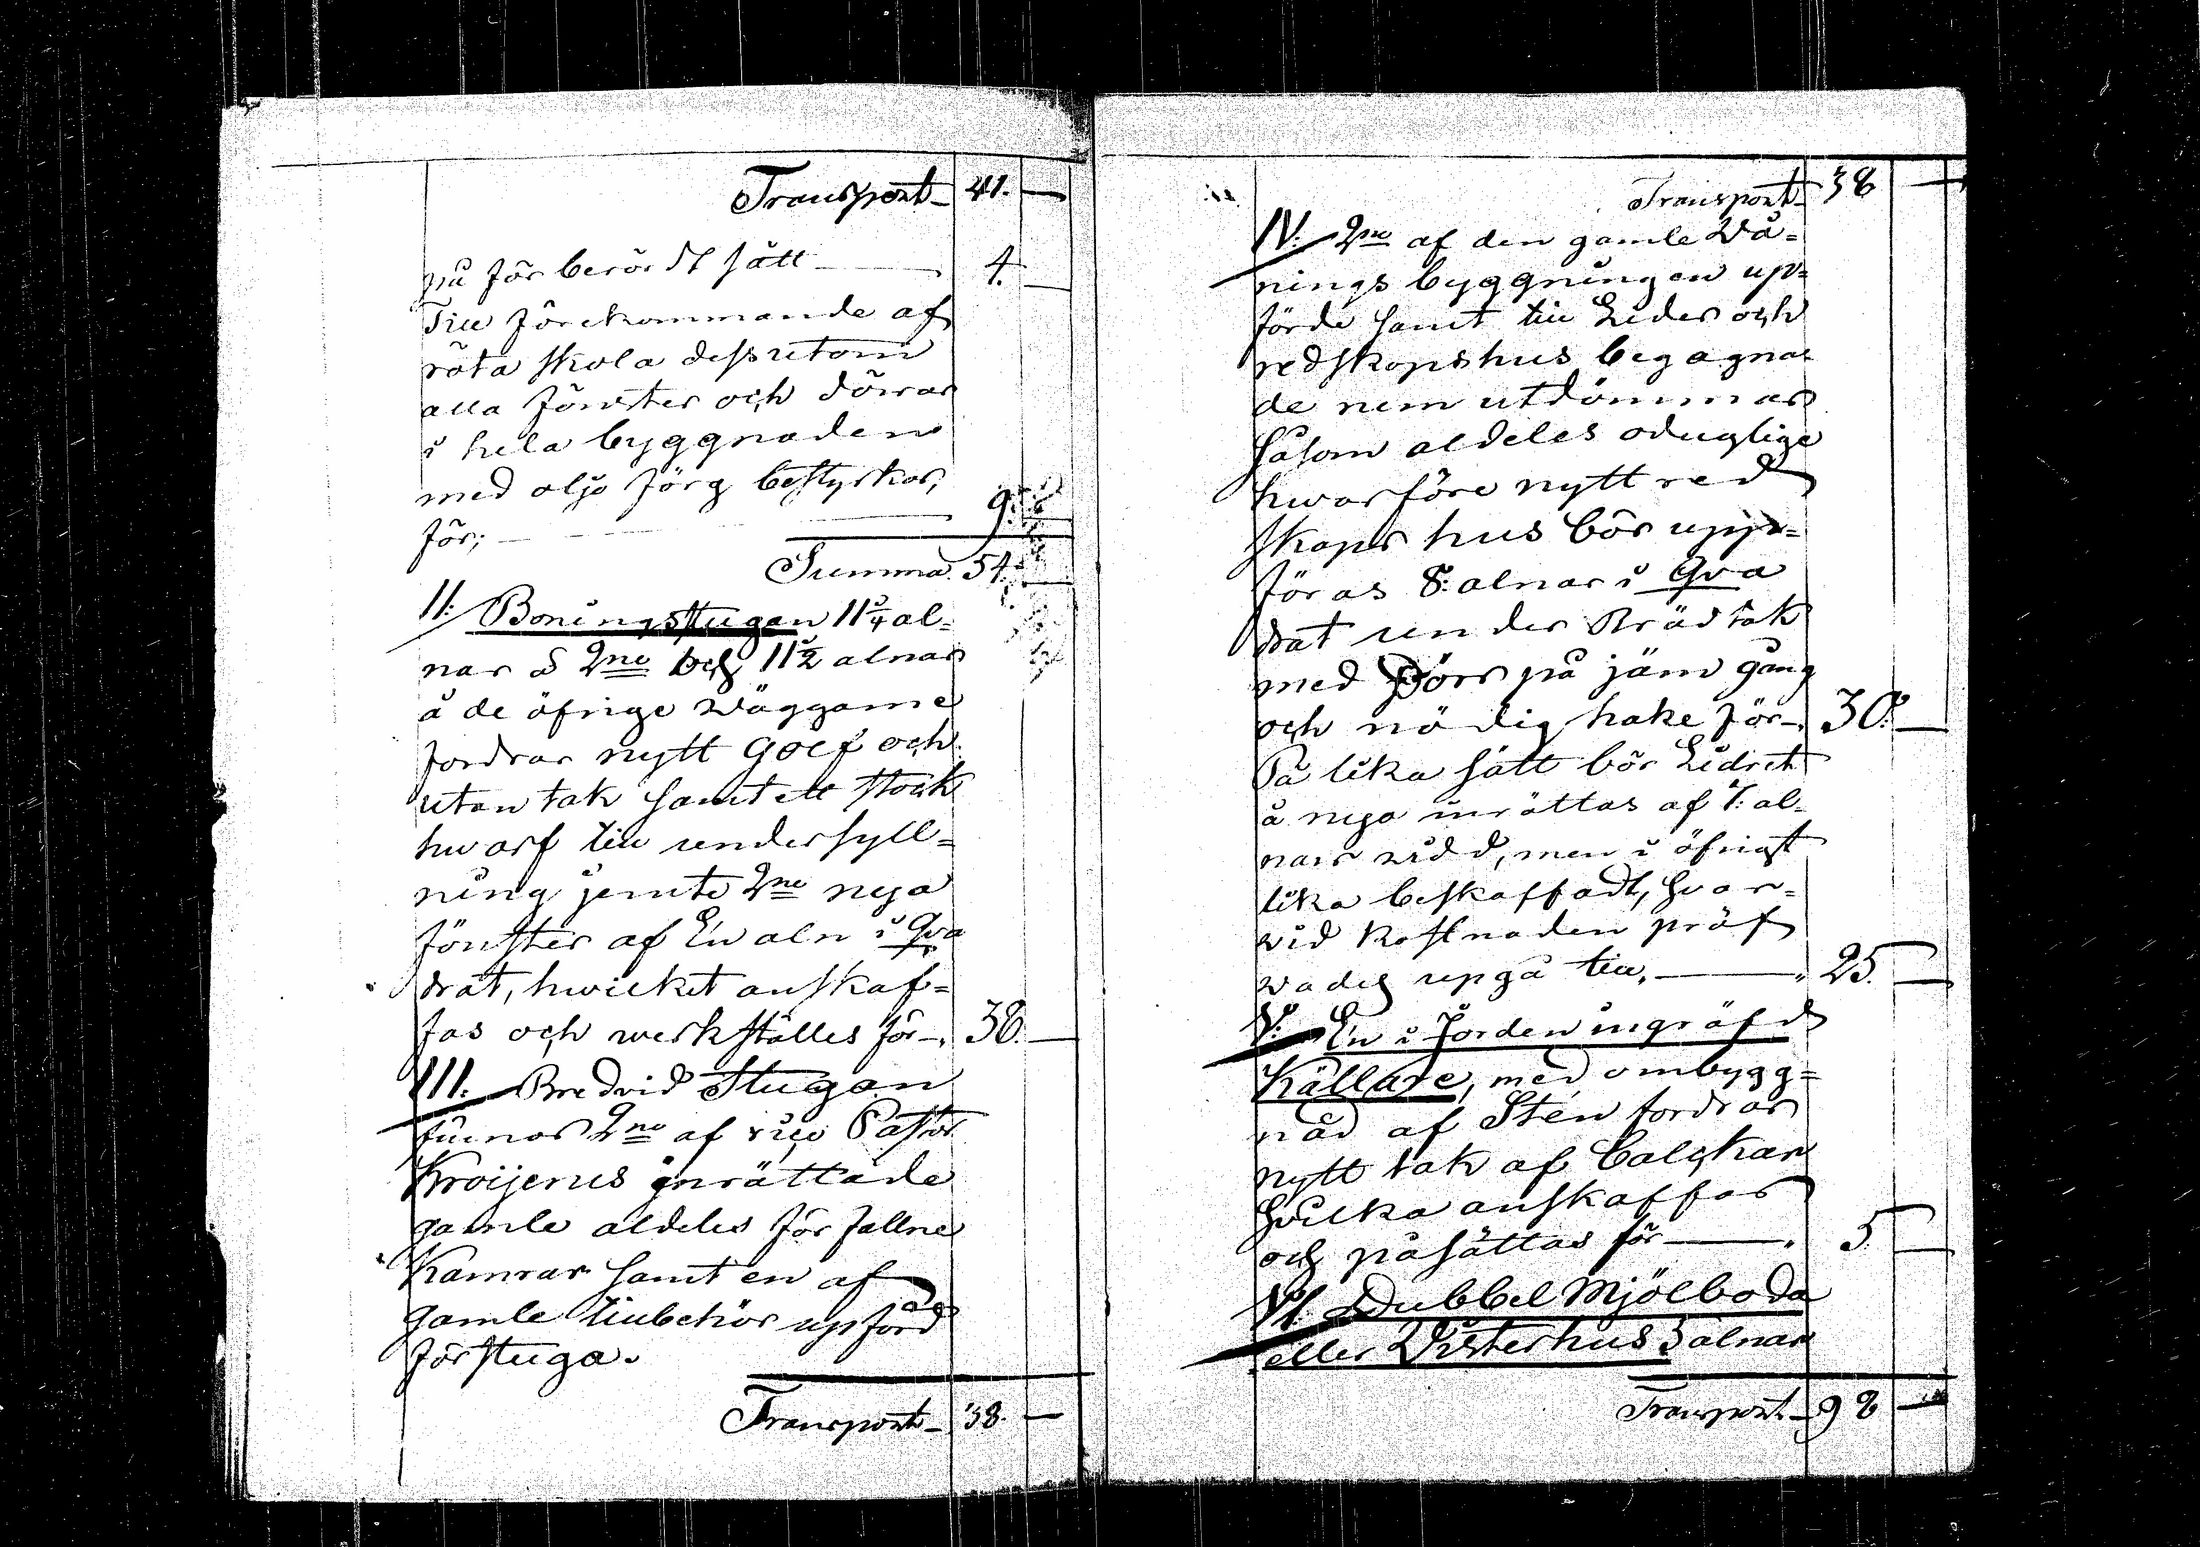 Transport 41. —
på förberördt sätt — 4. —
Till förekommande af
röta skola dessutom
alla fönster och dörrar
i hela byggnaden
med olje förg bestyrkas,
för; — 9. —
Summa 54. —
II: Boningsstugan 11 3/4 al=
nar å 2ne och 11 1/2 alnar
å de öfrige wäggarne
fordrar nytt golf och
utan tak samt ett stock
hwarf till undersyll=
ning jemte 2ne nya
fönster af En aln i Qva
drat, hwilket anskaf=
fas och werkställes för —. 38. —
III: Bredvid Stugan
finnas 2ne af vice Pastor
Kroijerus inrättade
gamle aldeles förfallne
Kamrar samt en af
gamle tillbehör upförd
förstuga.
Transport — 38. —
Transport — 38 —
IV: 2ne af den gamle Wå=
nings byggningen up=
förde samt till Lider och
redskopshus begagna
de rum utdömmas
såsom aldeles oduglige
hwarföre nytt red
skaps hus bör upp=
föras 8: alnar i Qva
drat under Brädtak
med Dörr på järn gång
och nödig hake för —. 30. —
På lika sätt bör Lidret
å nyo inrättas af 7: al=
nars widd, men i öfrigt
lika beskaffadt, hvar=
wid kostnaden pröf
wades upgå till, — 25. —
V: En i Jorden ingräfd
Källare, med ombygg=
nad af Sten fordrar
nytt tak af balckar
hvilka anskaffas
och påsättas för — 5. —
VI. Dubbel Mjölboda
eller Visterhus 3 alnar
Transport — 98 —